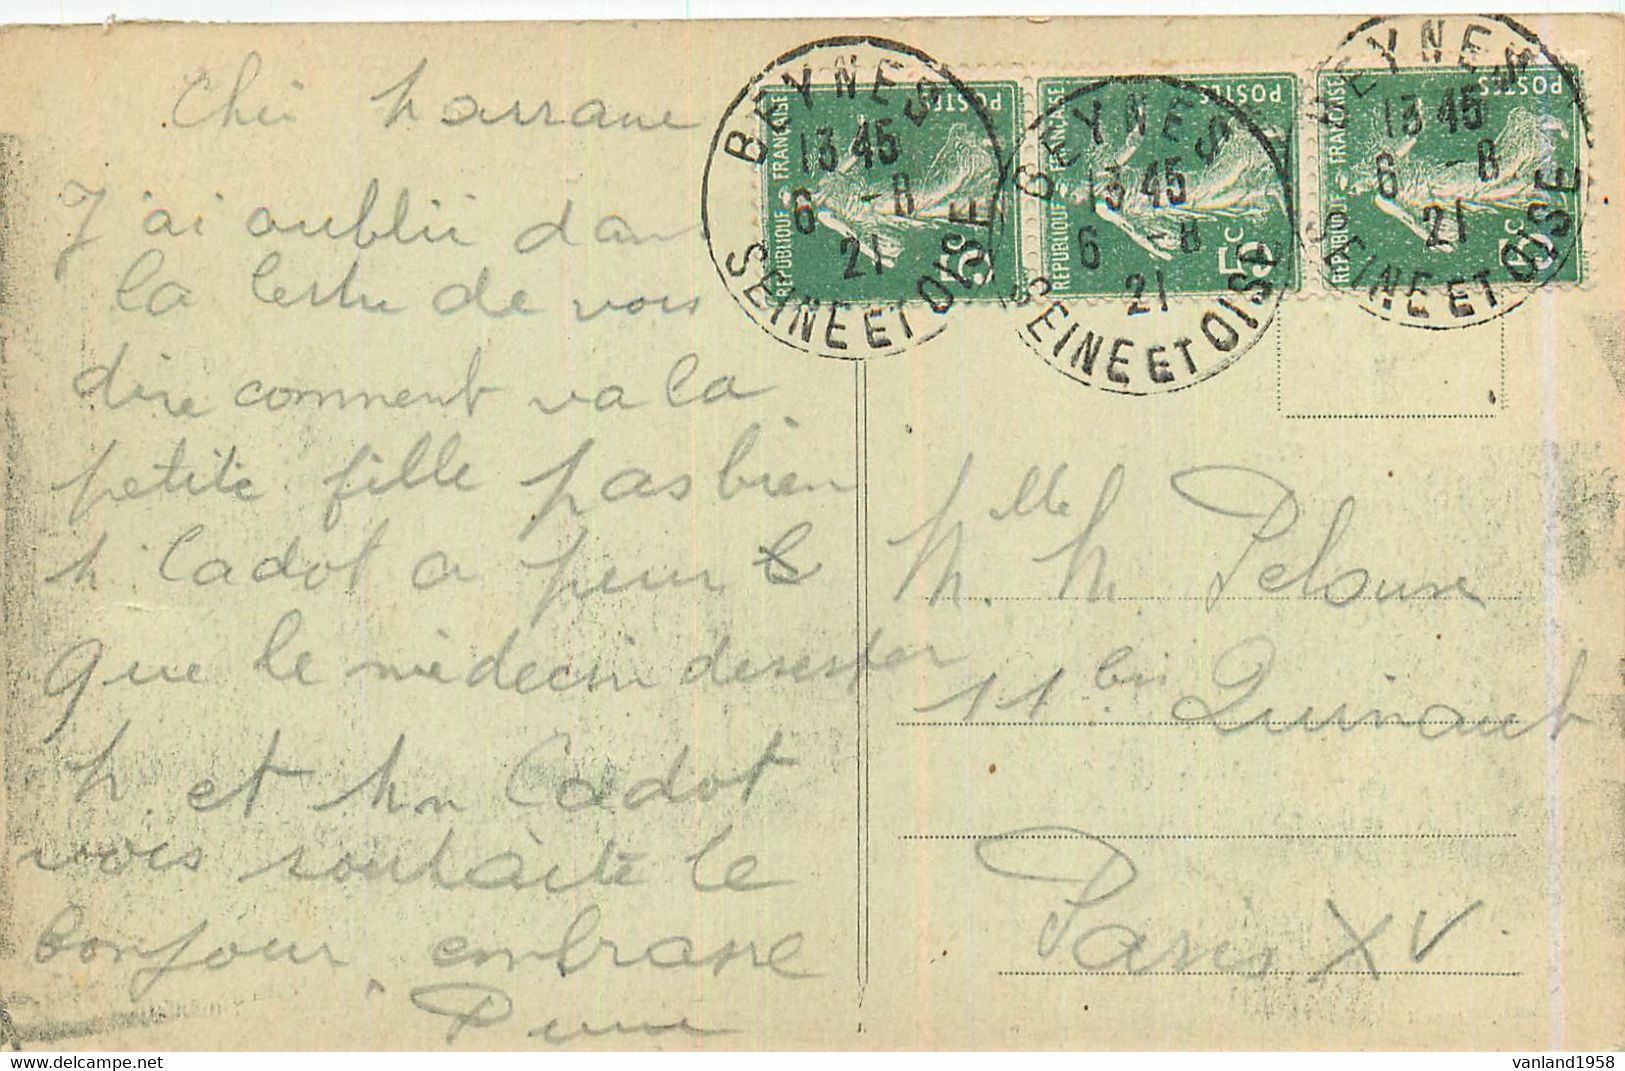 J'ai oublié dans
la lettre de vous
dire comment va la
petite fille pas bien
M. Cadot a peur
que le médecin
M. et Mm Cadot
vous souhaite le
bonjour, embrasse
BEYNES
13 45
6 -8
21
SEINE ET OISE
REPUBLIQUE FRANÇAISE
POSTES
5c
BEYNES
13 45
6 -8
21
SEINE ET OISE
REPUBLIQUE FRANÇAISE
POSTES
5c
BEYNES
13 45
6 -8
21
SEINE ET OISE
REPUBLIQUE FRANÇAISE
POSTES
5c
Mlle. M. Pelouse
11 bis Quinault
Paris XV
delcampe.net
vanland1958